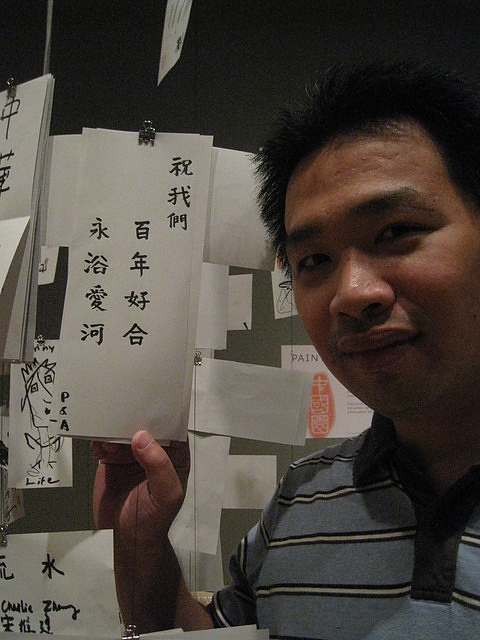 祝我們
百年好合
永浴愛河
中
P&A
Life
PAIN
水
Charlie